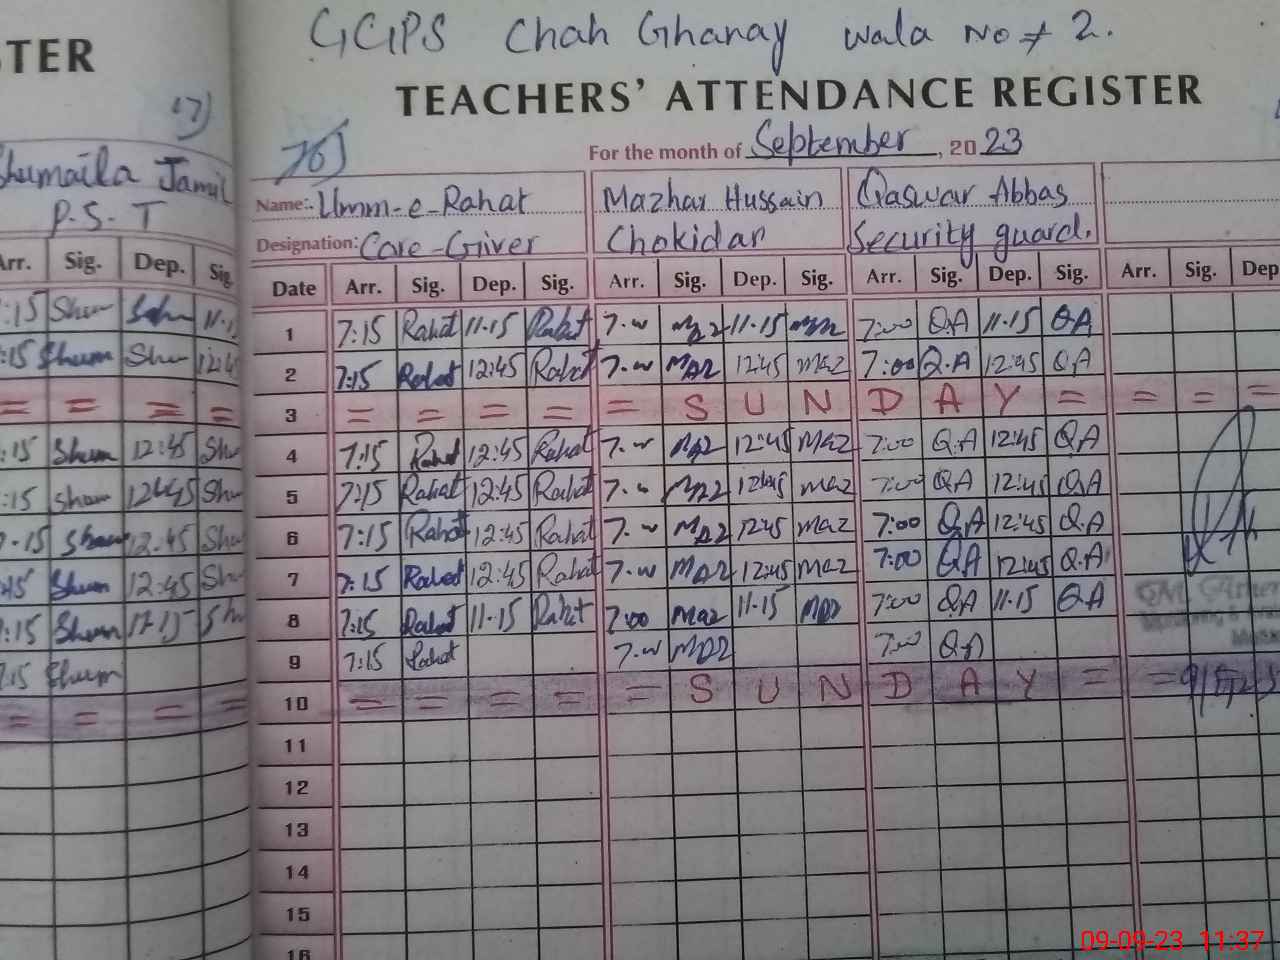 GGPS Chah Ghanay wala No # 2.
TER
TEACHERS' ATTENDANCE REGISTER
17)
76)
For the month of September, 2023
Shumaila Jamil
P.S.T
Name:- Umm-e-Rahat Mazhar Hussain Qaswar Abbas
Designation: Care-Giver Chokidar Security guard.
Arr. Sig. Dep. Sig
Date Arr. Sig. Dep. Sig. Arr. Sig. Dep. Sig. Arr. Sig. Dep. Sig. Arr. Sig. Dep
:15 Shum 11.1
1 7:15 Rahat 11-15 Rahat 11-15 7:00 QA 11-15 QA
:15 Shum Shu 12:4
2 7:15 Rahat 12:45 Rahat MAZ 12:45 MAZ 7:00 Q.A 12:45 QA
= = = =
3 = = = = = S U N D A Y = = = =
:15 Shum 12:45 Shu
4 7:15 Rahat 12:45 Rahat MAZ 12:45 MAZ 7:00 Q.A 12:45 Q.A
:15 Shum 12:45 Shu
5 7:15 Rahat 12:45 Rahat MAZ 12:45 MAZ 7:00 QA 12:45 Q.A
7-15 Shum 12.45 Shu
6 7:15 Rahat 12:45 Rahat MAZ 12:45 MAZ 7:00 Q.A 12:45 Q.A
:45 Shum 12:45 Sh
7 7:15 Rahat 12:45 Rahat MAZ 12:45 MAZ 7:00 QA 12:45 Q.A
:15 Shum Shu
8 7:15 Rahat 11-15 Rahat 7:00 MAZ 11-15 MAZ 7:00 QA 11-15 QA
7:15 Shum
9 7:15 Rahat MAZ 7:00 Q.A
= = = =
10 = = = = = S U N D A Y = =
11
12
13
14
15
16
09-09-23 11:37